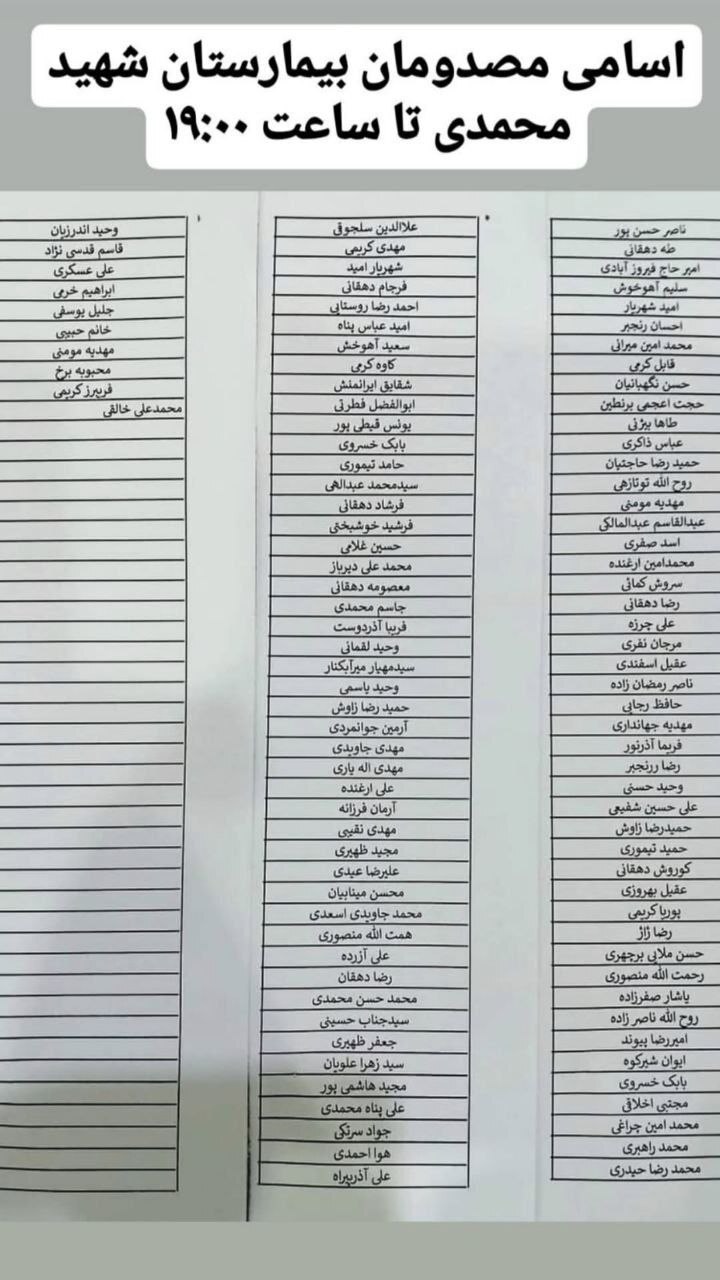 اسامی مصدومان بیمارستان شهید
محمدی تا ساعت ۱۹:۰۰
ناصر حسن پور
طه دهقانی
امیر حاج فیروز آبادی
سلیم آهوخوش
امید شهریار
احسان رنجبر
محمد امین میرانی
قابل کرمی
حسن نگهبانیان
حجت اعجمی برنطین
طاها بیژنی
عباس ذاکری
حمید رضا حاجتیان
روح الله توتازهی
مهدیه مومنی
عبدالقاسم عبدالمالکی
اسد صفری
محمدامین ارغنده
سروش کمائی
رضا دهقانی
علی چرزه
مرجان نفری
عقیل اسفندی
ناصر رمضان زاده
حافظ رجایی
مهدیه جهانداری
فریما آذرنور
رضا ررنجبر
وحید حسنی
علی حسین شفیعی
حمیدرضا زاوش
حمید تیموری
کوروش دهقانی
عقیل بهروزی
پوریا کریمی
رضا ژاژ
حسن ملایی برچهری
رحمت الله منصوری
یاشار صفرزاده
روح الله ناصر زاده
امیررضا پیوند
ایوان شیرکوه
بابک خسروی
مجتبی اخلاقی
محمد امین چراغی
محمد راهبری
محمد رضا حیدری
علاالدین سلجوقی
مهدی کریمی
شهریار امید
فرجام دهقانی
احمد رضا روستایی
امید عباس پناه
سعید آهوخش
کاوه کرمی
شقایق ایرانمنش
ابوالفضل فطرتی
یونس قیطی پور
بابک خسروی
حامد تیموری
سیدمحمد عبدالهی
فرشاد دهقانی
فرشید خوشبختی
حسین غلامی
محمد علی دیرباز
معصومه دهقانی
جاسم محمدی
فریبا آذردوست
وحید لقمانی
سیدمهیار میرآبکنار
وحید یاسمی
حمید رضا زاوش
آرمین جوانمردی
مهدی جاویدی
مهدی اله یاری
علی ارغنده
آرمان فرزانه
مهدی نقیبی
مجید ظهیری
علیرضا عیدی
محسن مینابیان
محمد جاویدی اسعدی
همت الله منصوری
علی آزرده
رضا دهقان
محمد حسن محمدی
سیدجناب حسینی
جعفر ظهیری
سید زهرا علویان
مجید هاشمی پور
علی پناه محمدی
جواد سرتکی
هوا احمدی
علی آذرپیراه
وحید اندرزیان
قاسم قدسی نژاد
علی عسکری
ابراهیم خرمی
جلیل یوسفی
خانم حبیبی
مهدیه مومنی
محبوبه برخ
فریبرز کریمی
محمدعلی خالقی